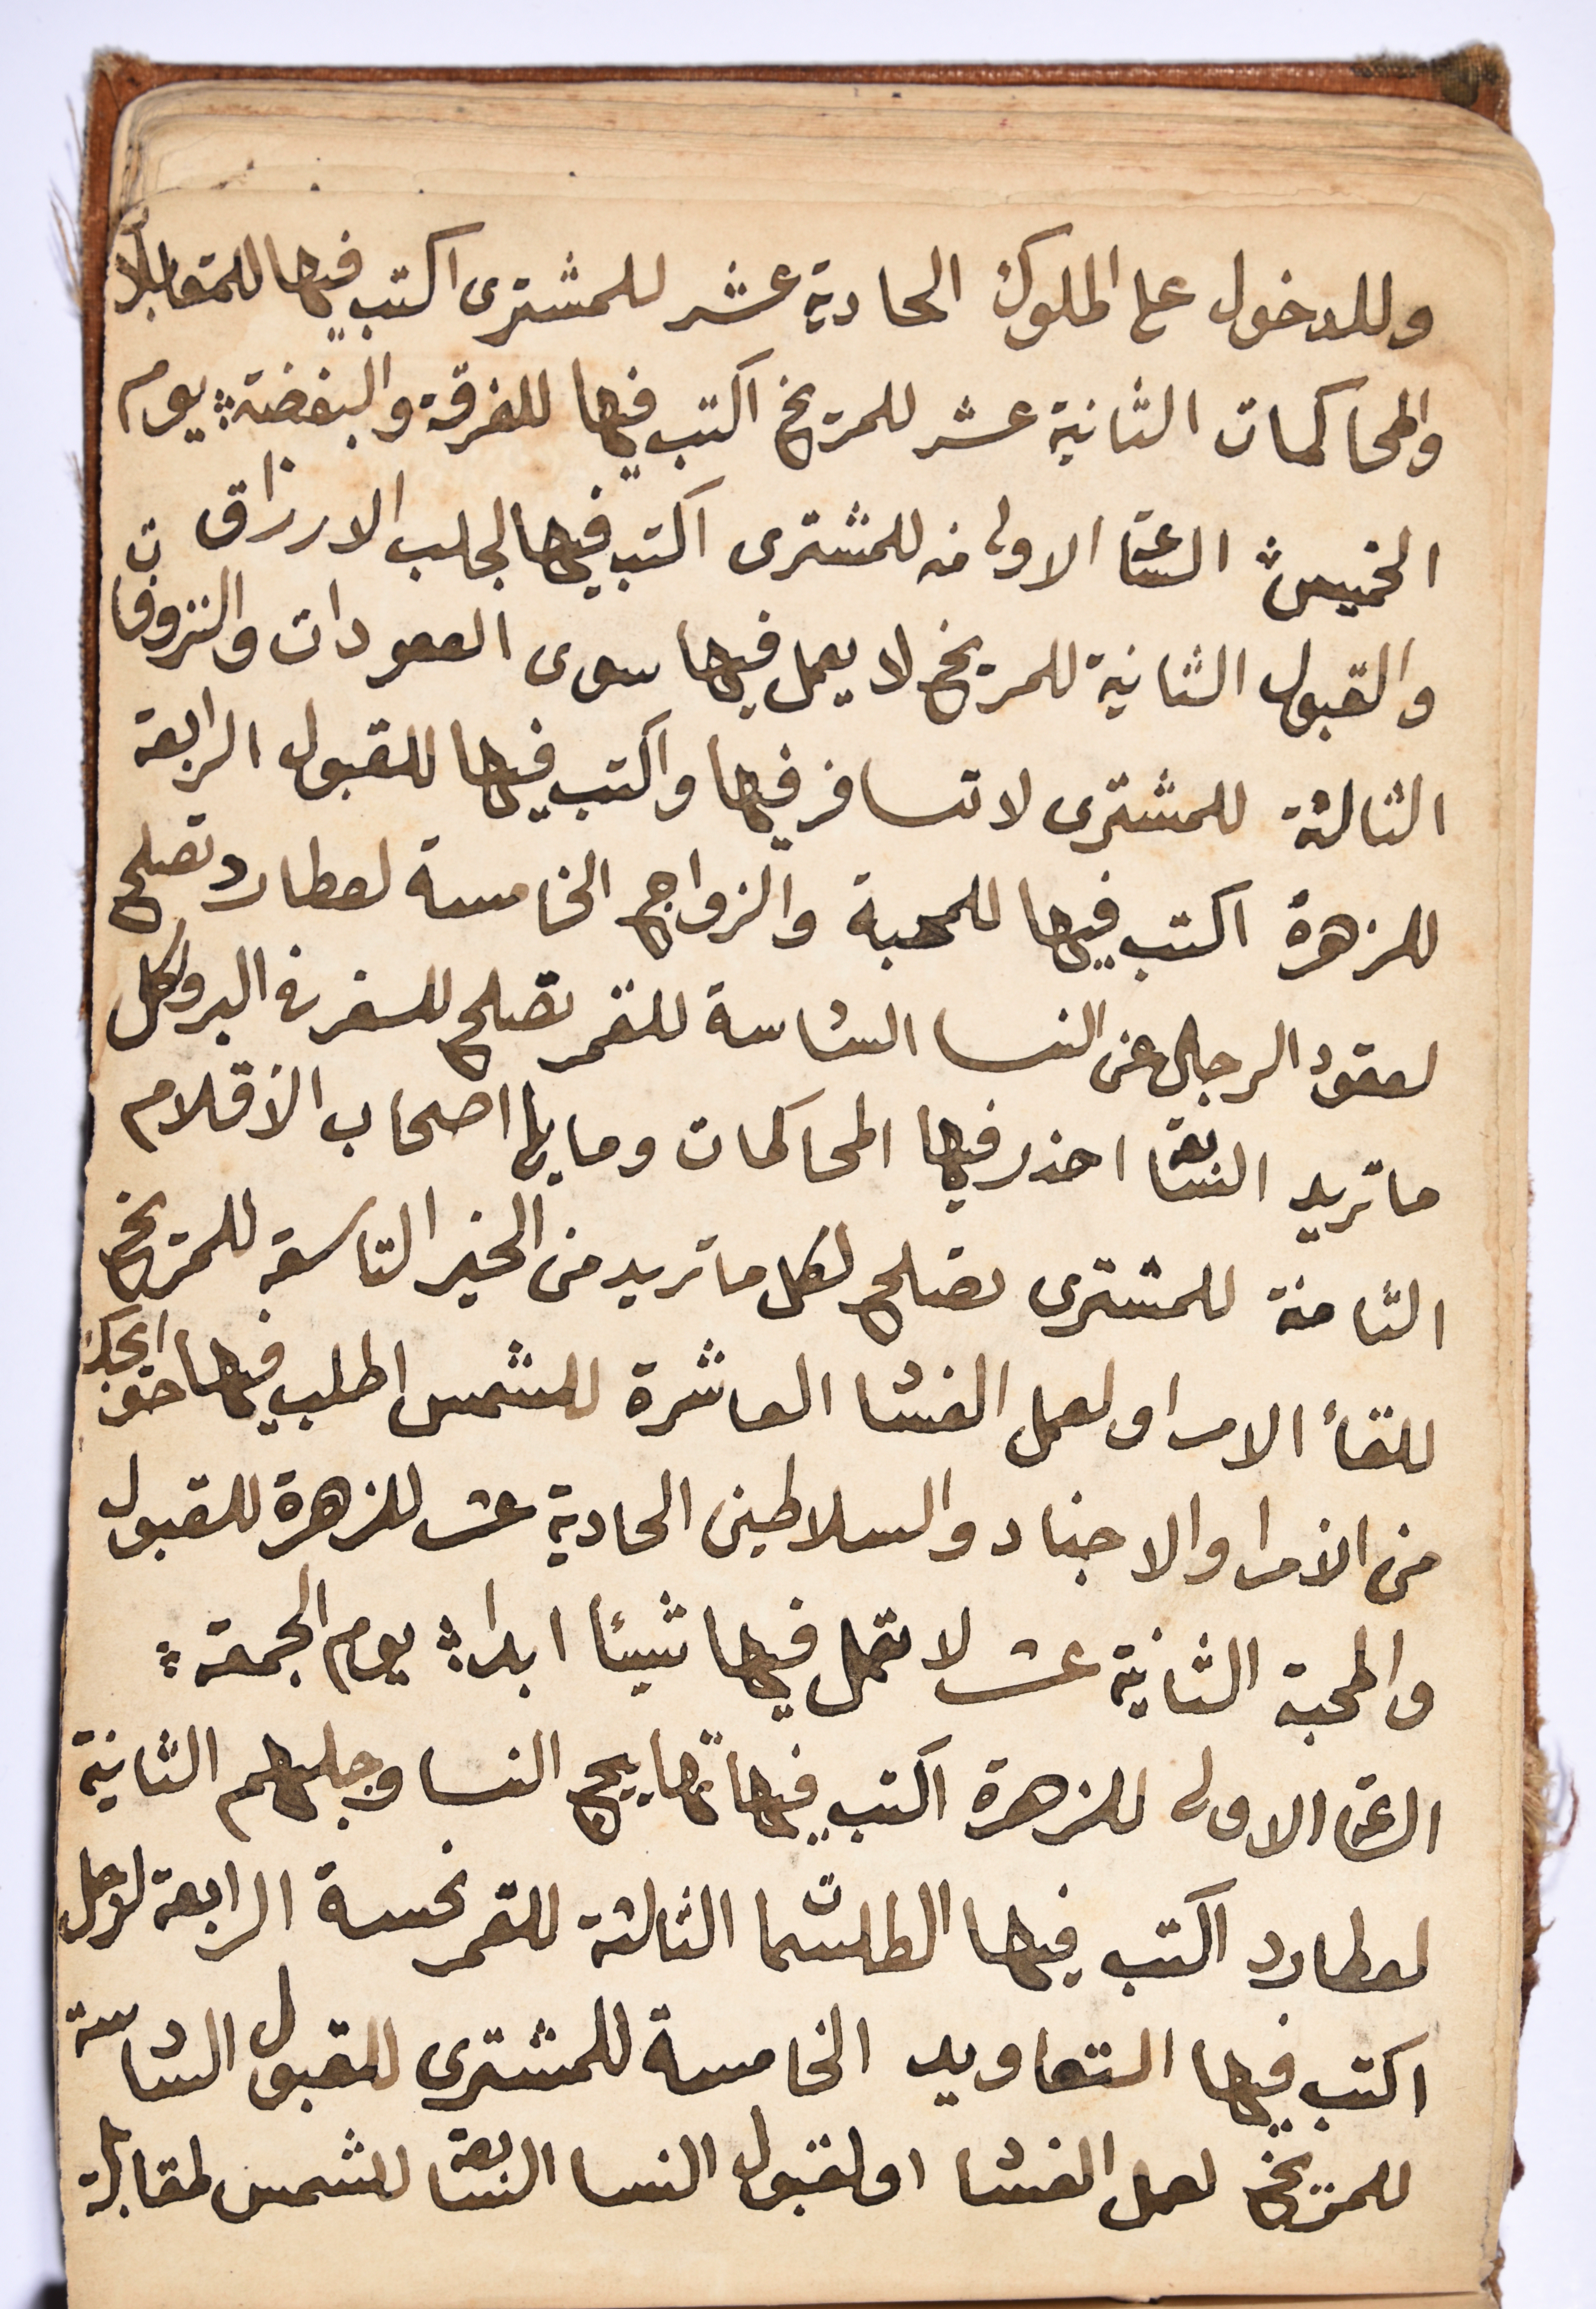 وللدخول على الملوك الحادية عشر للمشترى اكتب فيها للمقابلا
والمحاكمات الثانية عشر للمريخ اكتب فيها للفرقة والبغضة يوم
الخميس الساعة الاولى منه للمشترى اكتب فيها لجلب الارزاق
والقبول الثانية للمريخ لا يعمل فيها سوى العقودات والنزوفات
الثالثة للمشترى لا تسافر فيها واكتب فيها للقبول الرابعة
للزهرة اكتب فيها للمحبة والزواج الخامسة لعطارد تصلح
لعقود الرجال عن النسا السادسة للقمر تصلح للسفر فى البر ولكل
ما تريد السابعة احذر فيها المحاكمات وما يلى اصحاب الاقلام
الثامنة للمشترى تصلح لكل ما تريد من الخير التاسعة للمريخ
للقأ الامرا ولعمل الفساد العاشرة للشمس اطلب فيها حوايجك
من الامرا والاجناد والسلاطين الحادية عشر للزهرة للقبول
والمحبة الثانية عشر لا تعمل فيها شيئا ابدا يوم الجمعة
الساعة الاولى للزهرة اكتب فيها تهاييج النسا وجلبهم الثانية
لعطارد اكتب فيها الطلسمات الثالثة للقمر نحسة الرابعة لزحل
اكتب فيها التعاويد الخامسة للمشترى للقبول السادسة
للمريخ لعمل الفساد او لقبول النسا السابعة للشمس لمقابلة